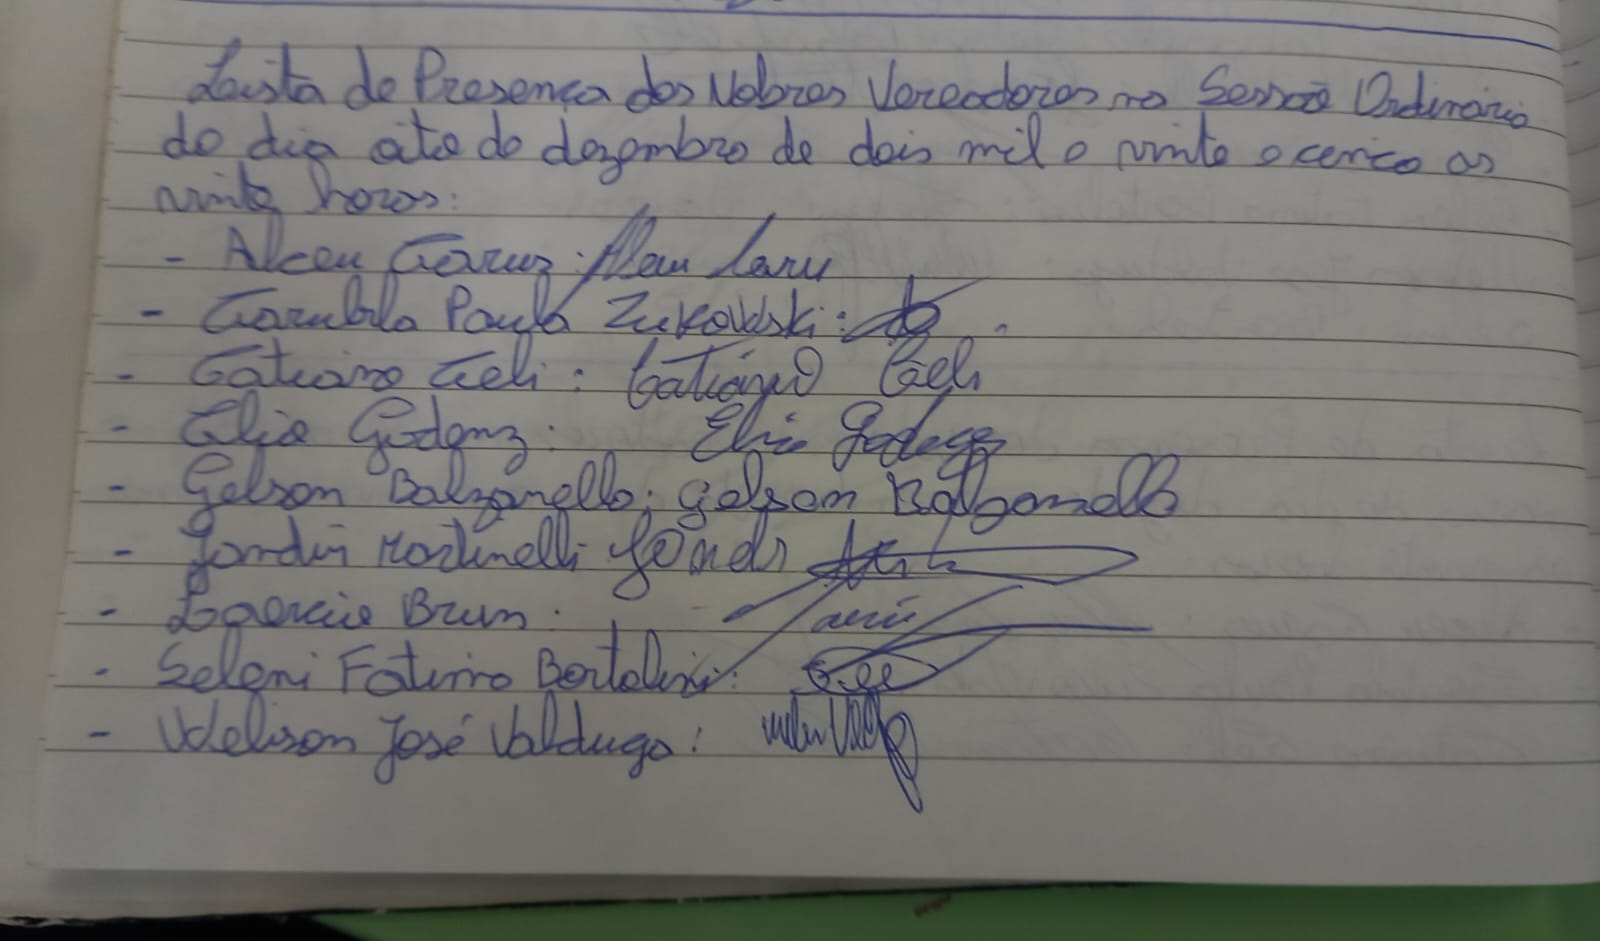 Lista de Presença dos Nobres Vereadores na Sessão Ordinária
do dia oito de dezembro de dois mil e vinte e cinco as
vinte horas:
- Alceu Garuz: Alceu Garu
- Paula Zukovski:
- Tatiana Geli: Tatiana Geli
- Elio Godenz: Elio
- Gelson Balzanello: Gelson Balzanello
- Jandir Martinelli Jandir
- Laercio Brun:
- Seleni Fatima Bortolini:
- Udelison José Valduga: